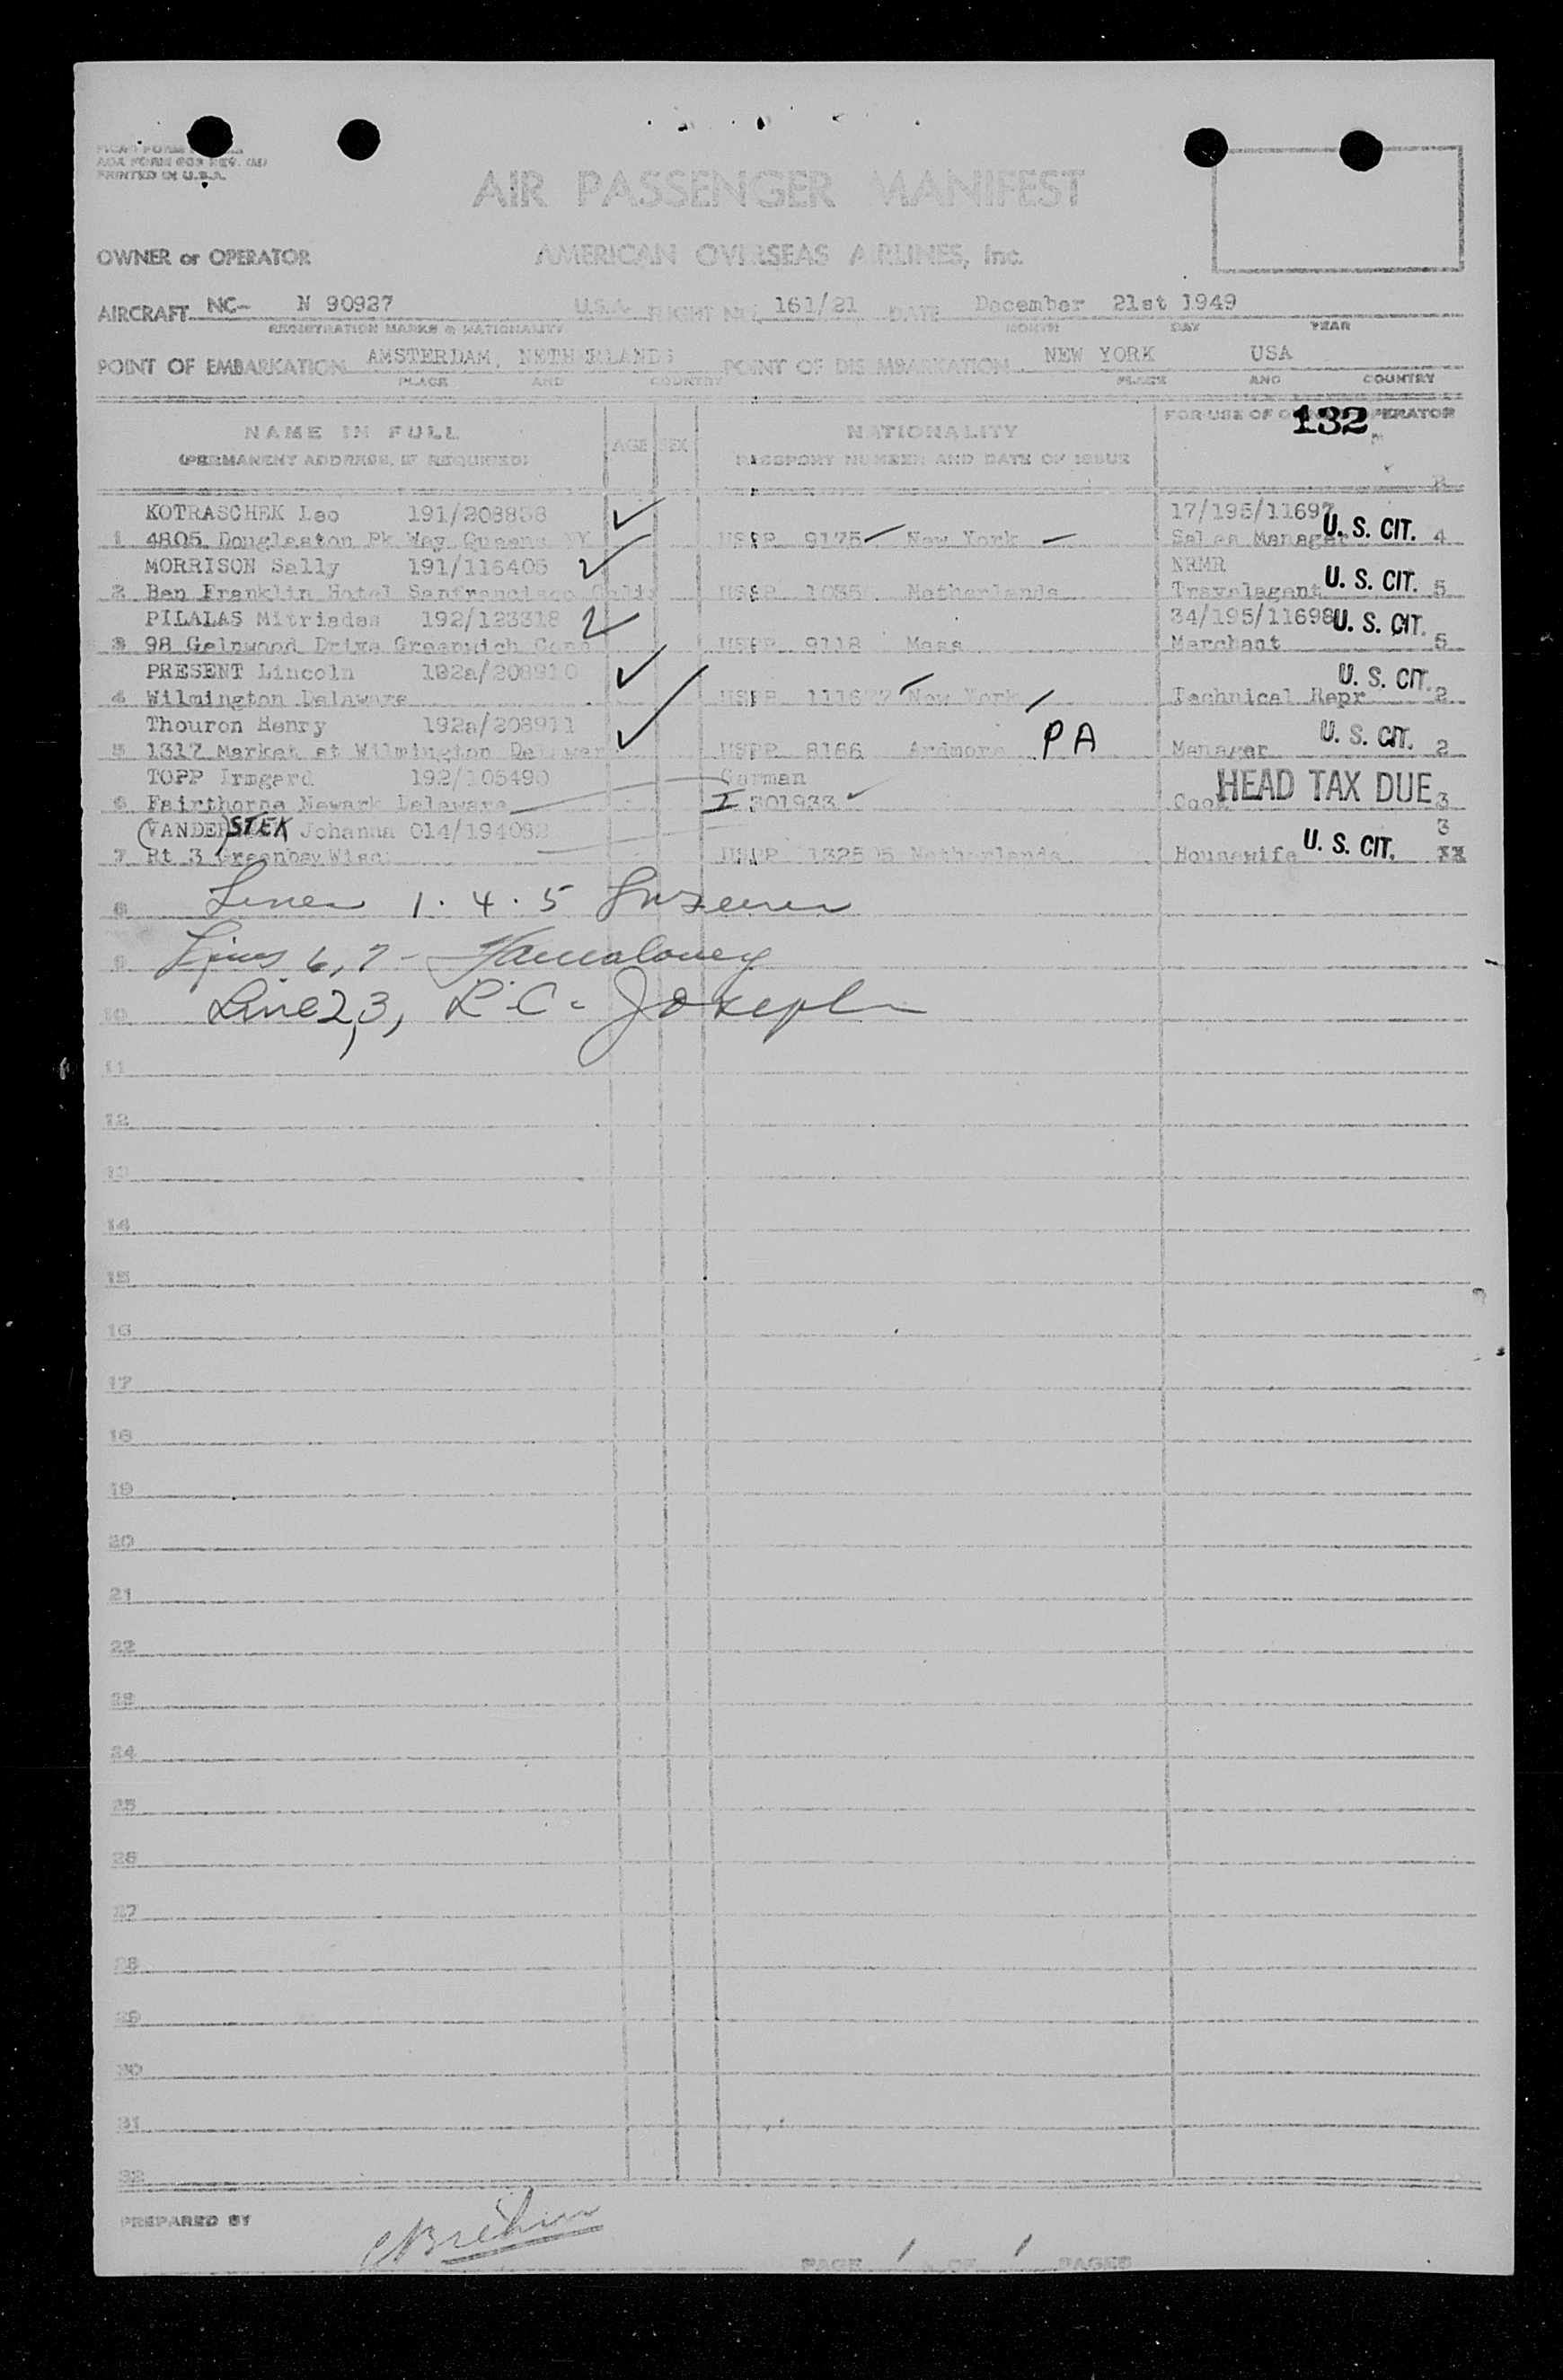 ACA FORM 603 REV. (M)
PRINTED IN U.S.A.
AIR PASSENGER MANIFEST
OWNER or OPERATOR AMERICAN OVERSEAS AIRLINES, Inc.
AIRCRAFT NC- N 90927 U.S.A. FLIGHT NO. 161/21 DATE December 21st 1949
REGISTRATION MARKS & NATIONALITY MONTH DAY YEAR
POINT OF EMBARKATION AMSTERDAM, NETHERLANDS POINT OF DISEMBARKATION NEW YORK USA
PLACE AND COUNTRY PLACE AND COUNTRY
NAME IN FULL AGE SEX NATIONALITY FOR USE OF OPERATOR 132
(PERMANENT ADDRESS, IF REQUIRED) PASSPORT NUMBER AND DATE OF ISSUE
KOTRASCHEK Leo 191/208858 17/195/11697
1 4805 Douglaston Pk Way Queens NY USPP 9175 New York Sales Manager U. S. CIT. 4
MORRISON Sally 191/115405 NRMR
2 Ben Franklin Hotel Sanfrancisco Calif USPP Netherlands Travelagent U. S. CIT. 5
PILALAS Mitriades 192/123318 34/195/11698
3 98 Drive Greenwich Conn USPP 9118 Mass Merchant U. S. CIT. 5
PRESENT Lincoln 192a/208910
4 Wilmington Delaware USPP New York Technical Repr U. S. CIT. 2
Thouron Henry 192a/208911
5 1317 Market st Wilmington Delawar USPP 8166 Ardmore PA Manager U. S. CIT. 2
TOPP Irmgard 192/105490 German
6 Fairthorne Newark Delaware I 301933 Cook HEAD TAX DUE 3
(VANDER) STEK Johanna 014/194082 3
7 Rt 3 Greenbay Wisc USPP Netherlands Housewife U. S. CIT. XX
8 Lines 1. 4. 5
9 Lines 6, 7 -
10 Line 2,3, R. C. Joseph
11
12
13
14
15
16
17
18
19
20
21
22
23
24
25
26
27
28
29
30
31
32
PREPARED BY
PAGE 1 OF 1 PAGES